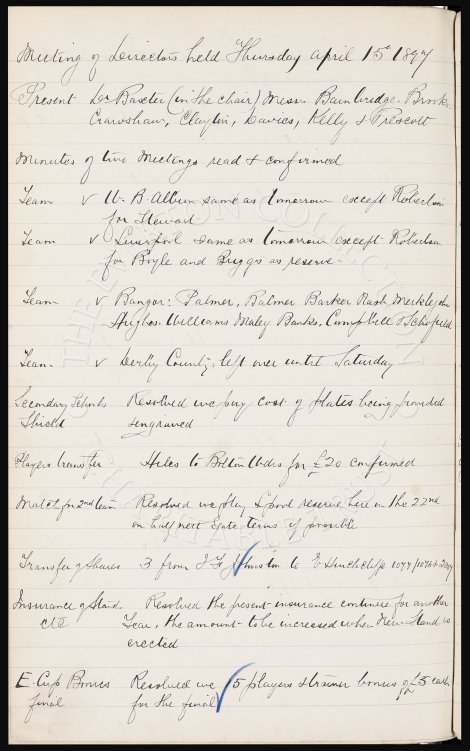 Meeting of Directors held Thursday April 15th 1897
Present Dr Baxter (in the chair) Messrs Bainbridge, Brooks,
Crawshaw, Clayton, Davies, Kelly & Prescott
Minutes of two Meetings read & confirmed
Team v W. B. Albion same as tomorrow except Robertson
for Stewart
Team v Liverpool same as tomorrow except Robertson
for Boyle and Briggs as reserve
Team v Bangor: Palmer, Balmer Barker Nash Meiklejohn
Hughes Williams Maley Banks, Campbell & Schofield
Team v Derby County, left over until Saturday
Secondary Schools Resolved we pay cost of plates being provided
Shield engraved
Players transfer Hiles to Bolton Wdrs for £20 confirmed
Match for 2nd Team Resolved we play L'pool reserve here on the 22nd
on half nett gate terms if possible
Transfer of Shares 3 from J F Johnston to E Hinchcliffe
Insurance of Stand Resolved the present insurance continue for another
etc Year, the amount to be increased when New Stand is
erected
E. Cup Bonus Resolved we 15 players & trainer bonus of £5 each
final for the final